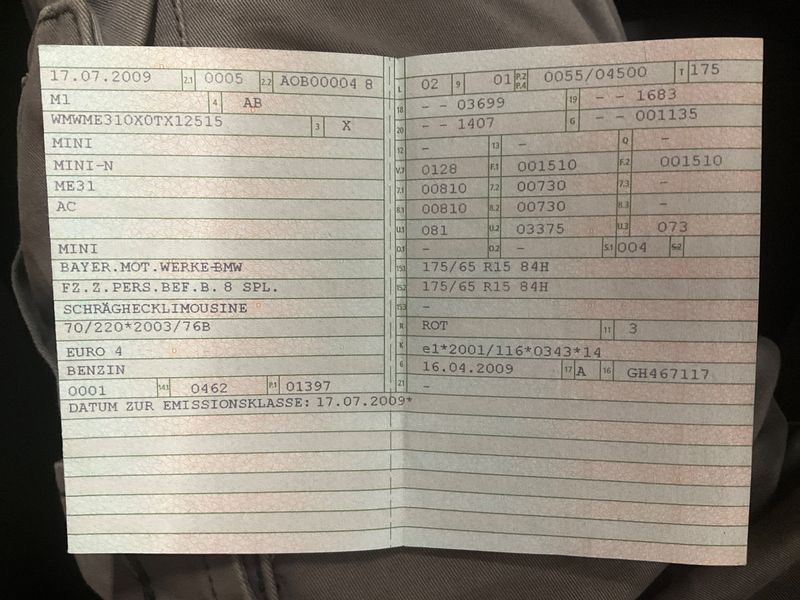 17.07.2009 2.1 0005 2.2 AOB00004 8
M1 4 AB
WMWME310X0TX12515 3 X
MINI
MINI-N
ME31
AC
MINI
BAYER.MOT.WERKE-BMW
FZ.Z.PERS.BEF.B. 8 SPL.
SCHRÄGHECKLIMOUSINE
70/220*2003/76B
EURO 4
BENZIN
0001 14.1 0462 P.1 01397
DATUM ZUR EMISSIONSKLASSE: 17.07.2009*
L 02 9 01 P.2 P.4 0055/04500 T 175
18 - - 03699 19 - - 1683
20 - - 1407 G - - 001135
12 - 13 - Q -
V.7 0128 F.1 001510 F.2 001510
7.1 00810 7.2 00730 7.3 -
8.1 00810 8.2 00730 8.3 -
U.1 081 U.2 03375 U.3 073
O.1 - O.2 - S.1 004 S.2
15.1 175/65 R15 84H
15.2 175/65 R15 84H
15.3 -
R ROT 11 3
K e1*2001/116*0343*14
6 16.04.2009 17 A 16 GH467117
21 -